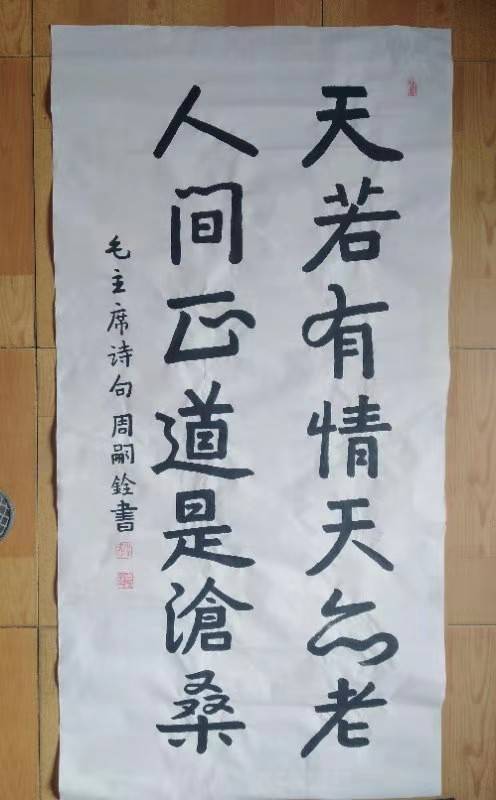 天若有情天亦老
人间正道是滄桑
毛主席诗句周嗣銓書